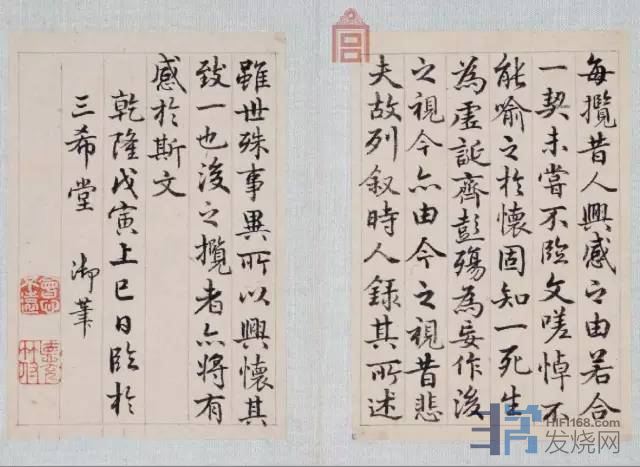 每攬昔人興感之由若合
一契未嘗不臨文嗟悼不
能喻之於懷固知一死生
為虛誕齊彭殤為妄作後
之視今亦由今之視昔悲
夫故列叙時人錄其所述
雖世殊事異所以興懷其
致一也後之攬者亦將有
感於斯文
乾隆戊寅上巳日臨於
三希堂 御筆
HIFI168.com
发烧网